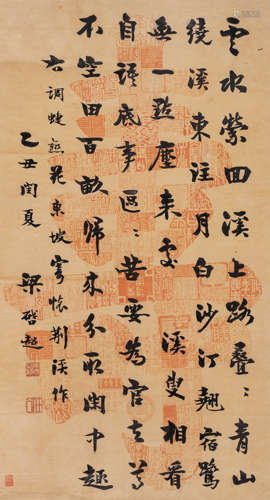 雲水縈回溪上路疊〻青山
繞溪東注月白沙汀翹宿鷺
無一點塵來處溪叟相看
自語底事區〻苦要為官去尊
不空田百畝歸來分取閑中趣
右調蜨戀花東坡寄懷荊溪作
乙丑閏夏 梁啓超